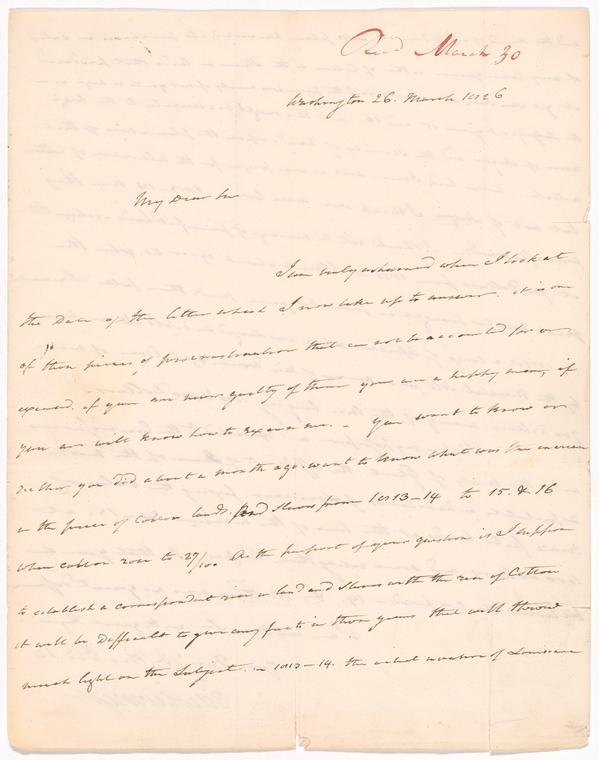 Recd March 30
Washington 26. March 1826
My Dear Sir
I am truly ashamed when I look at
the Date of the letter which I now take up to answer. it is one
of those pieces of procrastination that can not be accounted for or
excused. if you are never guilty of them you are a happy man, if
you are will know how to Excuse me. – You want to know or
rather you did about a month ago want to know what was the increase
in the price of Cotton lands. And Slaves from 1813–14 to 15. & 16
when cotton rose to 27/100 As the purport of your question is I suppose
to establish a correspondent rise in land and Slaves with the rise of Cotton
it will be Difficult to give any facts in those years that will throw
much light on the Subject. in 1813–14. the actual invasion of Louisiana